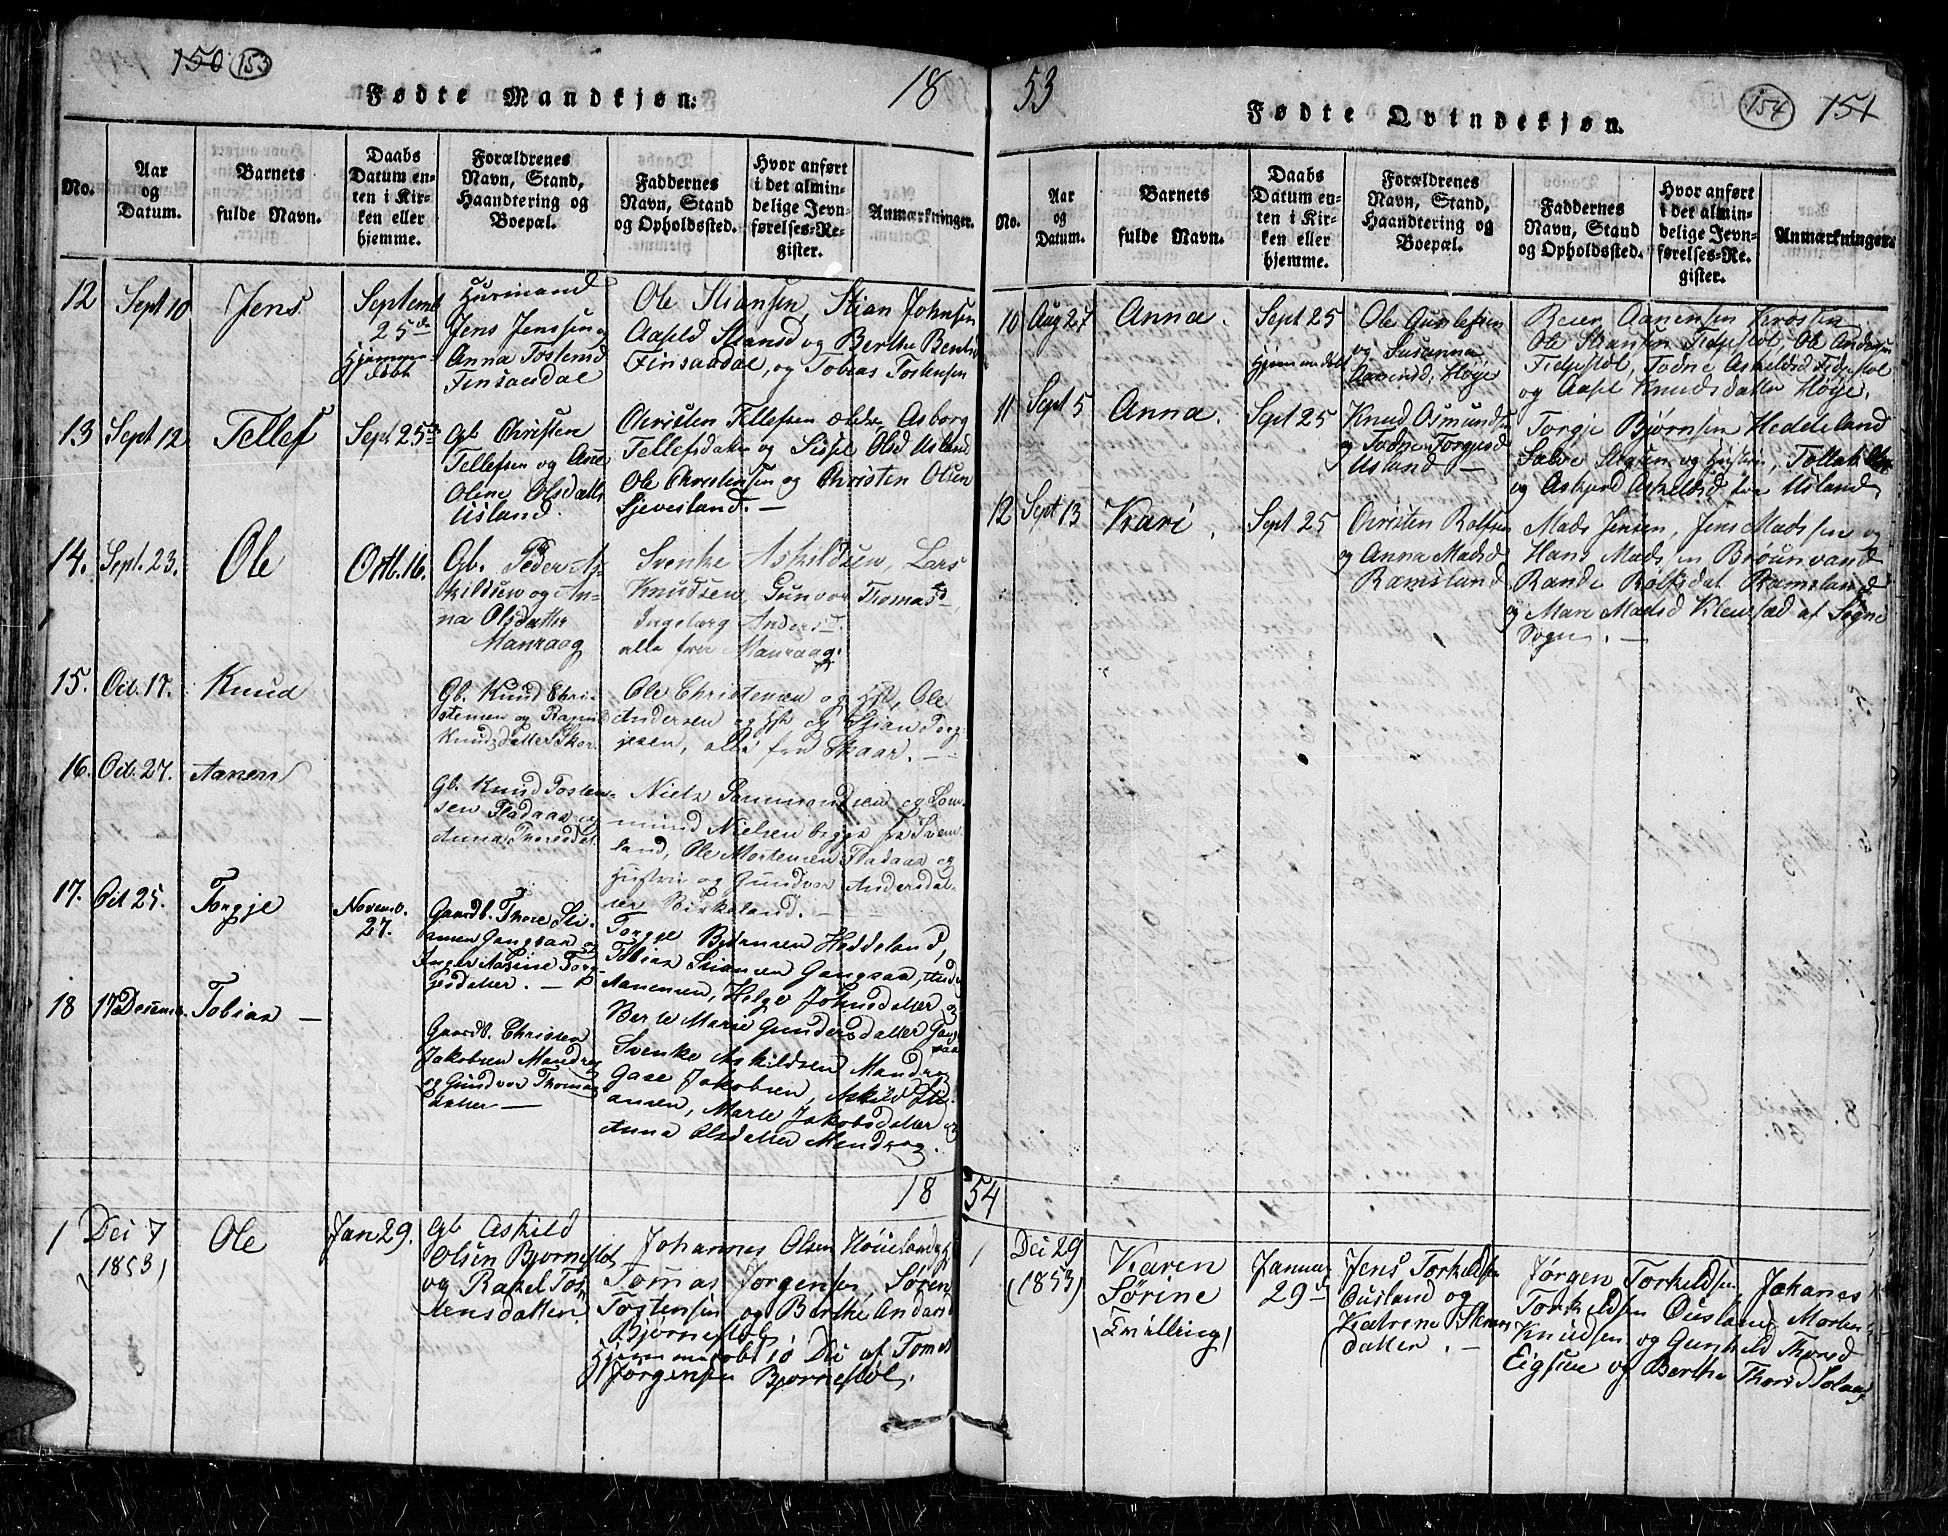 150 153
Fødte Mandkjøn.
18
No.
Aar
og
Datum.
Barnets
fulde Navn.
Daabs
Datum en-
ten i Kir-
ken eller
hjemme.
Forældrenes
Navn, Stand,
Haandtering og
Boepæl.
Faddernes
Navn, Stand
og Opholdssted.
Hvor anført
i det almin-
delige Jevn-
førelses-Re-
gister.
Anmærkninger.
12 Sept 10 Jens
Septemb
25de
Hjemme
døbt
Huusmand
Jens Jenssen og
Anna Tostensd
Finsaadal
Ole Stiansen, Stian Johnsen
Aasild Stiansd og Berthe Bents
Finsaadal, og Tobias Tostensen
13 Sept 12 Tellef Sept 25de
Gb Christen
Tellefsen og Ane
Oline Olsdatter
Usland.
Christen Tellefsen ældre, Asborg
Tellefsdatter og Sissel Olsd Usland
Ole Christensen og Christen Olsen
Ljevesland. —
14. Sept. 23. Ole Octb. 16.
Gb. Peder As-
kildsen og An-
na Olsdatter
Manraag
Svenke Askildsen, Lars
Knudsen, Gunvor Thomasd.
Ingeborg Andersd.
alle fra Manraag.
15. Oct. 17. Knud
Gb. Knud Chri-
stensen og Ragnild
Knudsdatter Skar
Ole Christensen og Hst, Ole
Andersen og Hst og Stian Torg-
jesen, alle fra Skaar. —
16. Oct. 27. Aanen
Gb. Knud Tosten-
sen Fladaas og
Anna Thorsdat.
Niels Sammondsen og Som-
mund Nielsen begge fra Svem-
land, Ole Mortensen Fladaas og
Hustru og Gundvor Andersdat-
ter Birkeland. —
17. Oct 25. Torgje
Novemb.
27.
Gaardb. Thore Sti-
ansen Gangsaa og
Inger Aasine Torg-
jesdatter. —
Torgje Bjørnsen Heddeland,
Tobias Stiansen Gangsaa,
Aanensen, Helge Johnsdatter og
Berte Marie Gundersdatter Gang-
saa
18 17 Desemb. Tobias —
Gaardb. Christen
Jakobsen Mandrog
og Gundvor Thomas
datter —
Svenke Askildsen Mandrog
Gase Jakobsen, Askild Sti-
ansen, Marte Jakobsdatter og
Anna Olsdatter Mandrog.
18
1 Dec 7
(1853)
Ole Jan 29.
Gb Askild
Olsen Bjørnestøl
og Rakel Tos
tensdatter.
Johannes Olsen Høieland
Tomas Jørgensen, Søren
Tostensen og Berthe
Bjørnestøl
Hjemmedøbt 10 Dec af Tomas
Jørgensen Bjørnestøl.
53
Fødte Qvindekjøn.
154 151
No.
Aar
og
Datum.
Barnets
fulde Navn.
Daabs
Datum en-
ten i Kir-
ken eller
hjemme.
Forældrenes
Navn, Stand,
Haandtering og
Boepæl.
Faddernes
Navn, Stand
og Opholdssted.
Hvor anført
i det almin-
delige Jevn-
førelses-Re-
gister.
Anmærkninger.
10 Aug 27 Anna.
Sept 25
Hjemmedøbt
Ole Gunlefsen
og Susanna
Aanensd, Høye
Reier Aanensen
Ole Stiansen Fidjestøl, Ole Andersen
Fidjestøl, Todne Askeldsd Fidjestøl
og Aasel Knudsdatter Høye.
11 Sept 5 Anna. Sept 25
Knud Osmundsen
og Todne Torgjesd
Usland —
Torgje Bjørnsen Heddeland
Salve Stiansen og Hustru, Tollak
og Asbjørd Askeldsd fra Usland
12 Sept 13 Kari. Sept 25
Christen Rolfsen
og Anna Madsd
Ramsland
Mads Jensen, Jens Madssen og
Hans Madssen Brounvand
Rande Rolfsdat Ramsland
og Mare Madsd Kleustad af Søgne
Sogn. —
54
1 Dec 29
(1853)
Karen
Sørine
(Tvilling)
Januar
29de
Jens Torkeldsen
Ousland og
Katrine
datter. —
Jørgen Torkeldsen, Johanes
Torkeldsen Ousland, Morten
Knudsen og Gunhild Thorsd
Eigsue og Berthe Thorsd Solaas